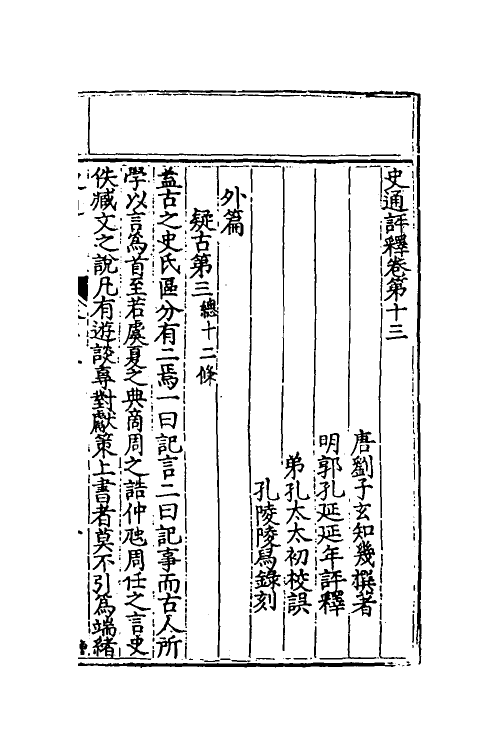 史通評釋卷第十三
唐劉子玄知幾撰著
明郭孔延延年評釋
弟孔太太初校誤
孔陵陵舄錄刻
外篇
疑古第三總十二條
葢古之史氏區分有二焉一曰記言二曰記事而古人所
學以言爲首至若虞夏之典商周之誥仲虺周任之言史
佚臧文之說凡有遊談專對獻策上書者莫不引爲端緒